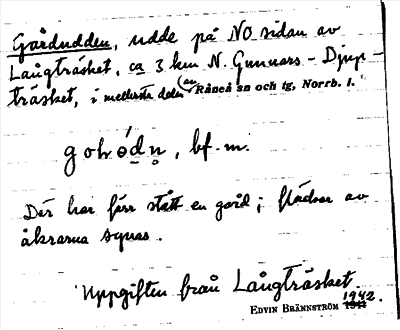 Gårdudden, udde på NO sidan av
Långträsket, ca 3 km N. Gunnars-Djup-
träsket, i mellersta delen av Råneå sn och tg, Norrb. l.
bf. m.
Där har förr stått en gård; flädrar av
åkrarna synas.
Uppgiften från Långträsket.
EDVIN BRÄNNSTRÖM 1942.